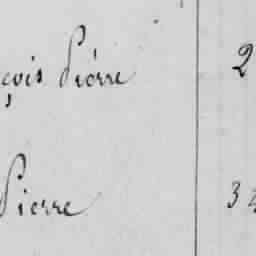 çois Pierre 2
Pierre 3